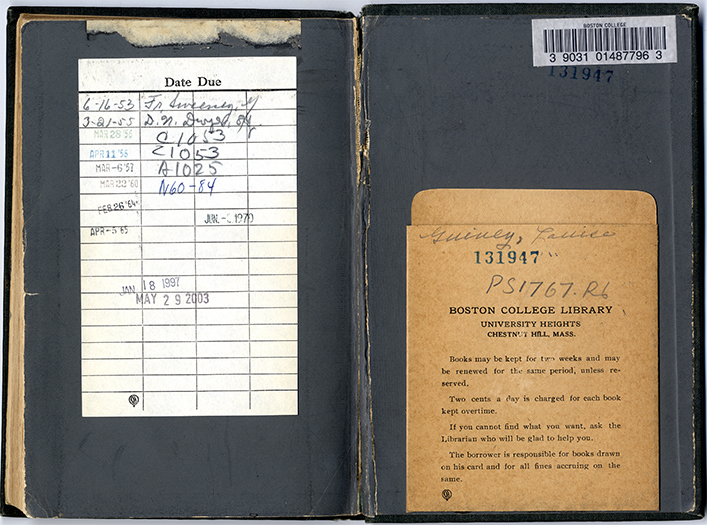 Date Due
6-16-53 Fr. Sweeney, SJ
3-21-55 D. N. Dwyer, SJ
MAR 28 '56 C1053
APR 11 '56 C1053
MAR -6 '57 A1025
MAR 22 '60 N60-84
FEB 26 '64
JUN. 1970
APR -5 65
JAN 18 1997
MAY 29 2003
BOSTON COLLEGE
3 9031 01487796 3
131947
Guiney, Louise
131947
PS1767.R6
BOSTON COLLEGE LIBRARY
UNIVERSITY HEIGHTS
CHESTNUT HILL, MASS.
Books may be kept for two weeks and may
be renewed for the same period, unless re-
served.
Two cents a day is charged for each book
kept overtime.
If you cannot find what you want, ask the
Librarian who will be glad to help you.
The borrower is responsible for books drawn
on his card and for all fines accruing on the
same.